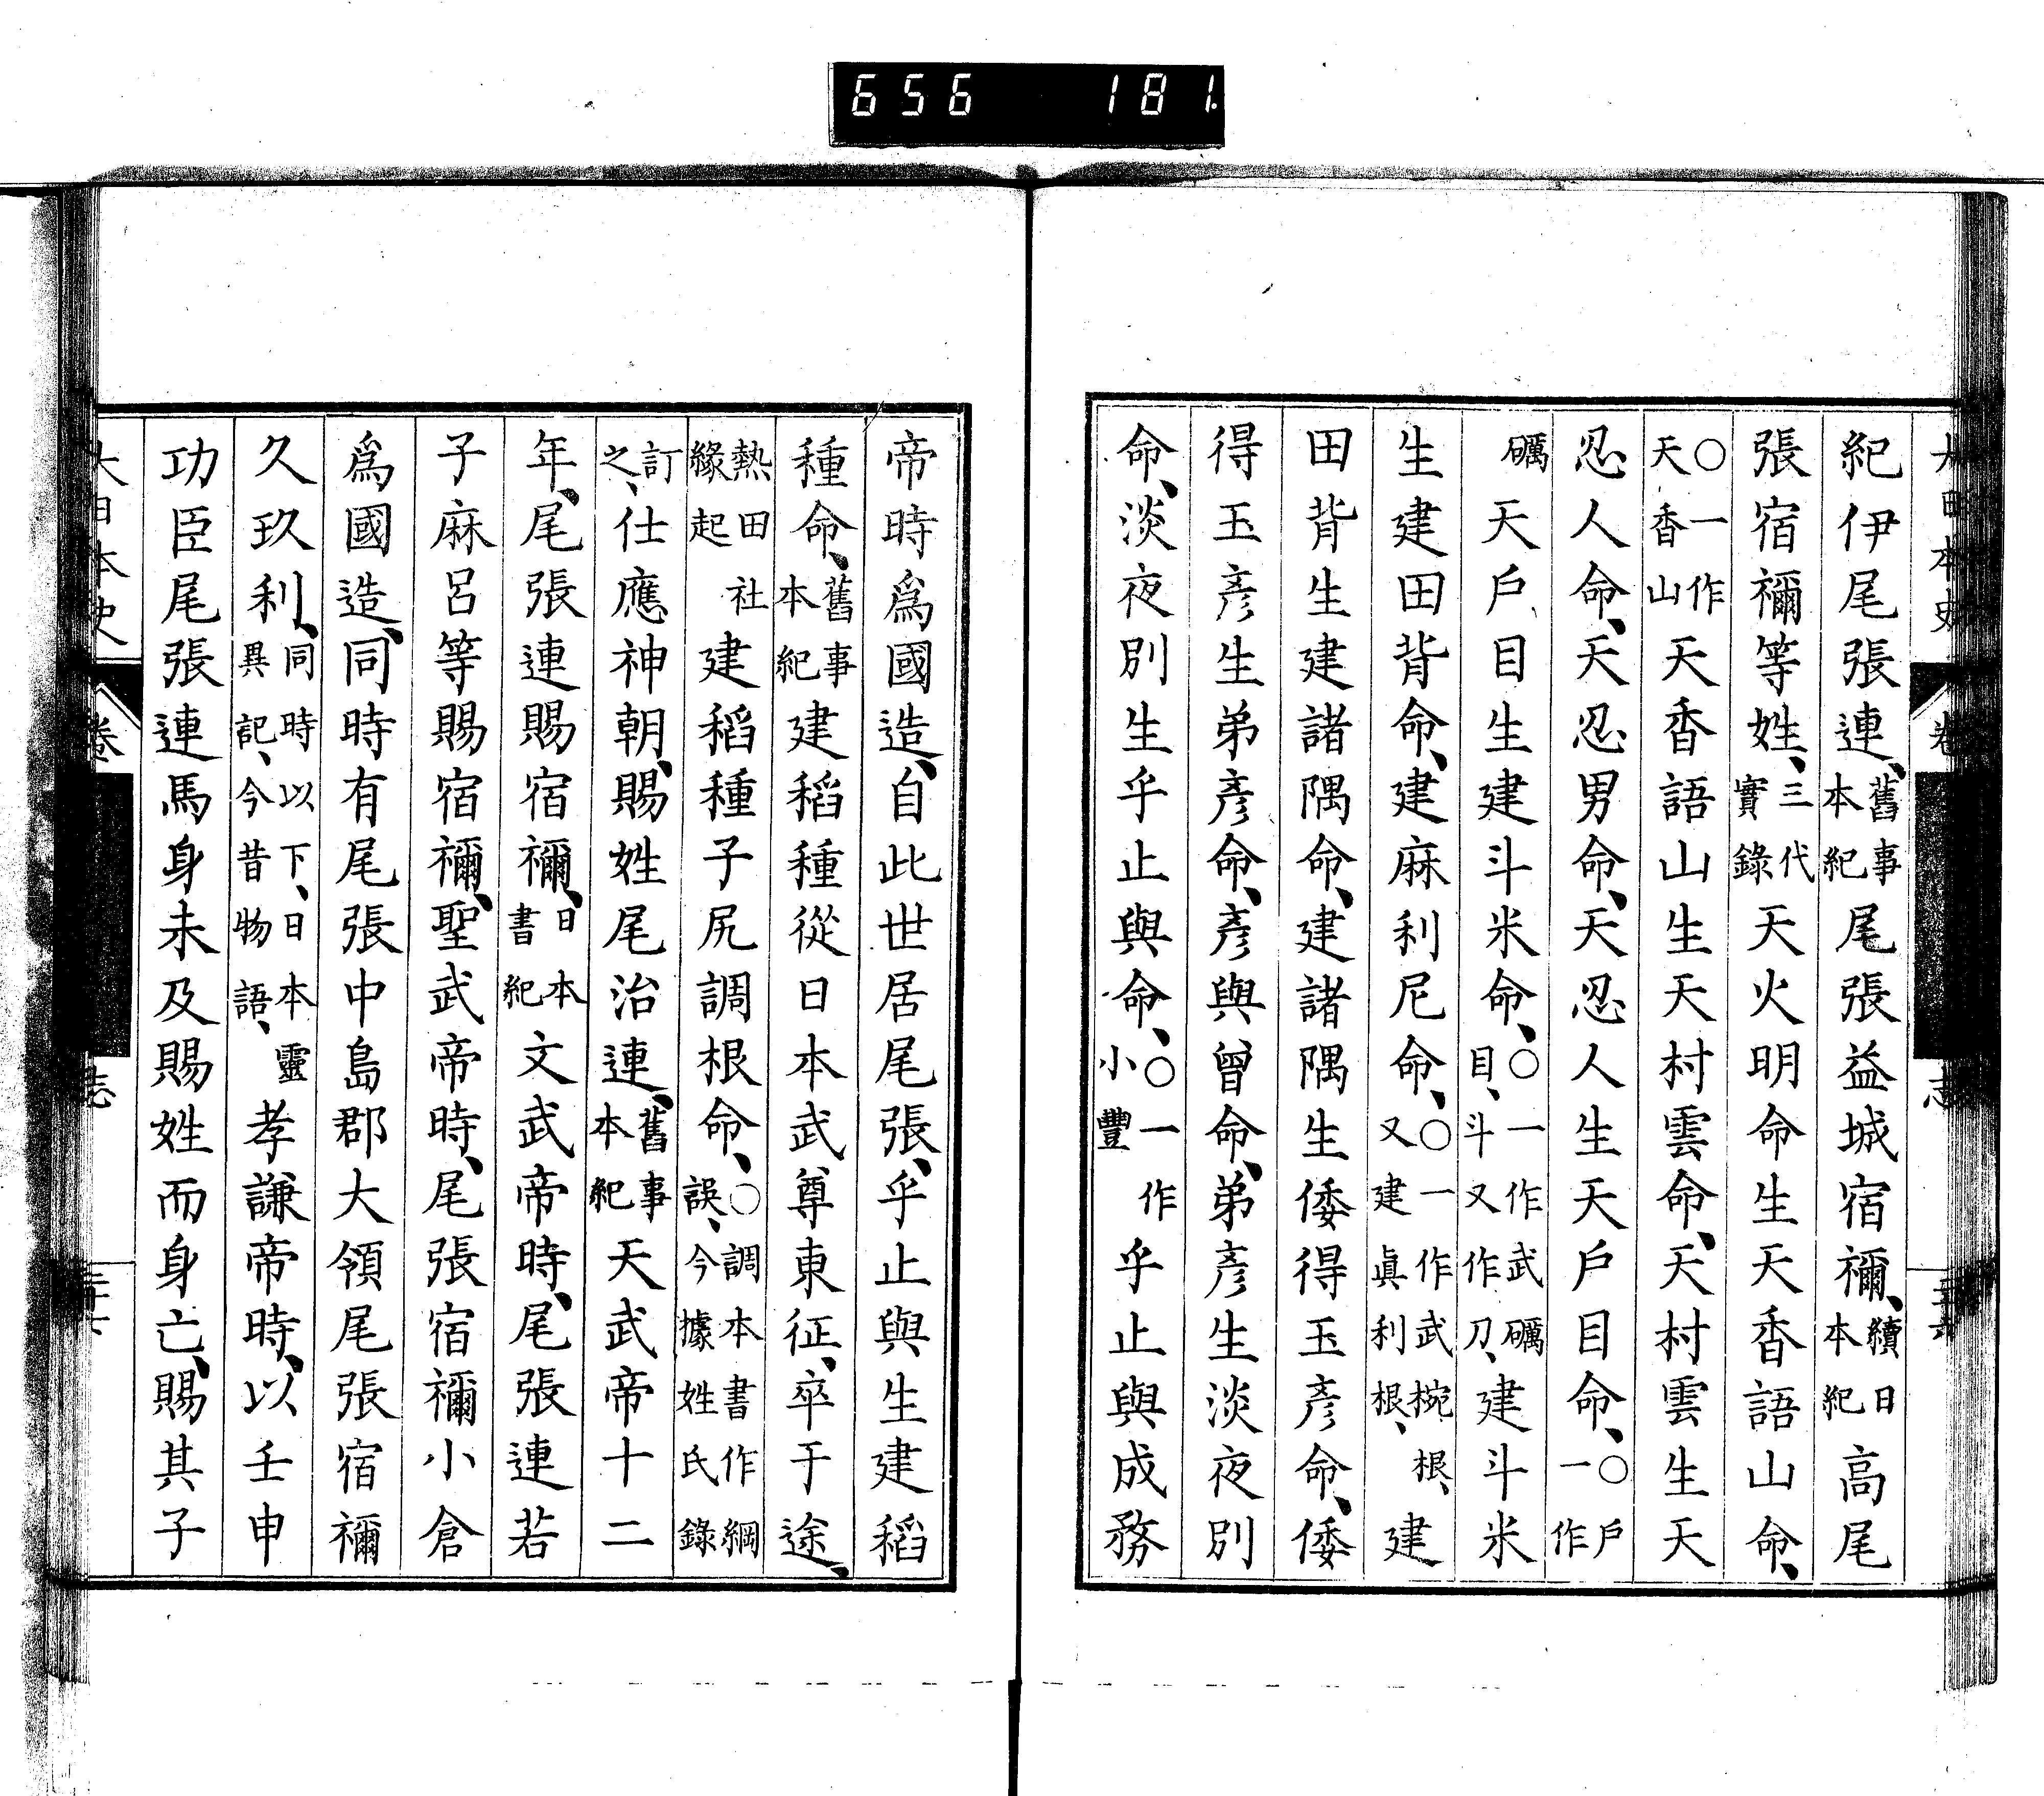 656 181
大日本史 卷 志
紀伊尾張連、舊事本紀尾張益城宿禰、續日本紀高尾
張宿禰等姓、三代實錄天火明命生天香語山命、
○一作天香山天香語山生天村雲命、天村雲生天
忍人命、天忍男命、天忍人生天戶目命、○戶一作
礪天戶目生建斗米命、○一作武礪目、斗又作刀、建斗米
生建田背命、建麻利尼命、○一作武椀根、又建眞利根、建
田背生建諸隅命、建諸隅生倭得玉彥命、倭
得玉彥生弟彥命、彥與曾命、弟彥生淡夜別
命、淡夜別生乎止與命、○一作小豐乎止與成務
帝時爲國造、自此世居尾張、乎止與生建稻
種命、舊事本紀建稻種從日本武尊東征、卒于途、
熱田社緣起建稻種子尻調根命、○調本書作綱誤、今據姓氏錄
訂之、仕應神朝、賜姓尾治連、舊事本紀天武帝十二
年、尾張連賜宿禰、日本書紀文武帝時、尾張連若
子麻呂等賜宿禰、聖武帝時、尾張宿禰小倉
爲國造、同時有尾張中島郡大領尾張宿禰
久玖利、同時以下、日本靈異記、今昔物語、孝謙帝時、以壬申
功臣尾張連馬身未及賜姓而身亡、賜其子
大日本史 卷 志